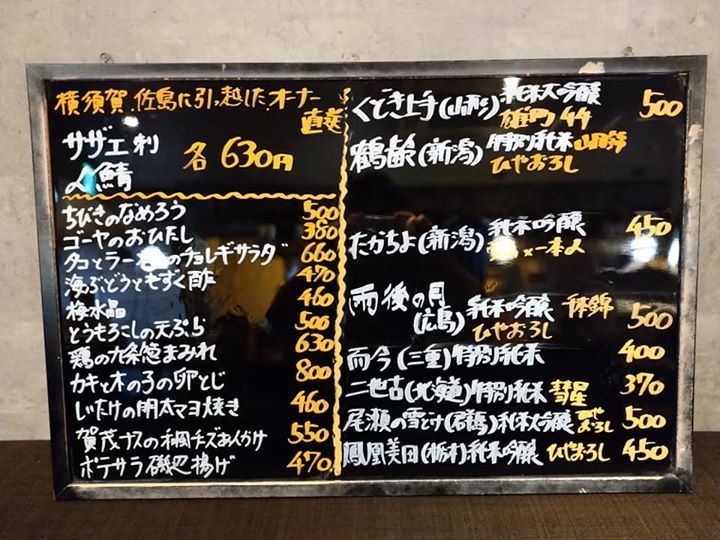 横須賀、佐島に引っ越したオーナー
直送
サザエ刺
〆鯖
各 630円
ちびきのなめろう 500
ゴーヤのおひたし 380
タコとラー のチョレギサラダ 660
海ぶどうともずく酢 470
梅水晶 460
とうもろこしの天ぷら 500
鶏の九条葱まみれ 630
カキと木の子の卵とじ 800
しいたけの明太マヨ焼き 460
賀茂ナスの和風チーズあんかけ 550
ポテサラ磯辺揚げ 470
くどき上手(山形)純米大吟醸 500
雄町 44
鶴齢(新潟)特別純米 山田錦
ひやおろし
たかちよ(新潟)純米吟醸 450
×一本〆
雨後の月
(広島)純米吟醸 千本錦 500
ひやおろし
而今(三重)特別純米 400
二世古(北海道)特別純米 彗星 370
尾瀬の雪どけ(群馬)純米大吟醸 ひやおろし 500
鳳凰美田(栃木)純米吟醸 ひやおろし 450